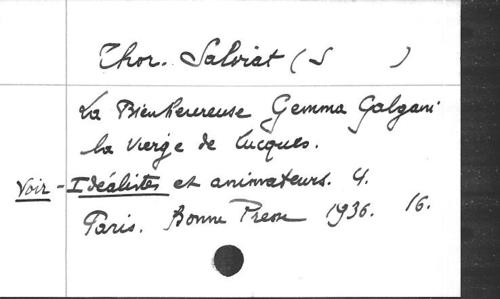 Thor. Salviat (S )
La Bienheureuse Gemma Galgani
la vierge de Lucques.
Voir - Idéalistes et animateurs. 4.
Paris. Bonne Presse 1936. 16.